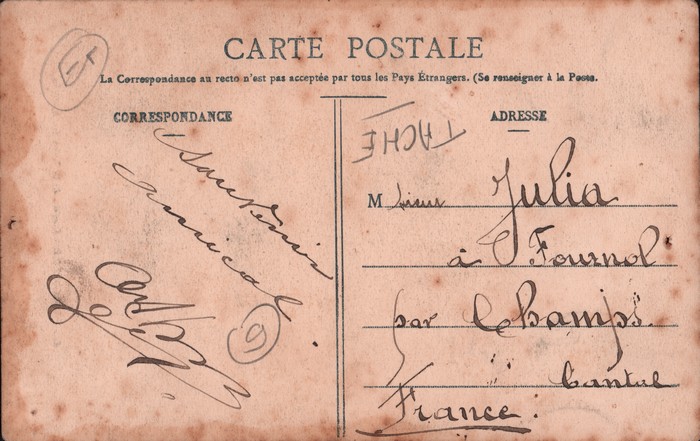 CARTE POSTALE
La Correspondance au recto n'est pas acceptée par tous les Pays Étrangers. (Se renseigner à la Poste.
CORRESPONDANCE
Souvenir
amical
TACHÉ
ADRESSE
Monsieur Julia
à Fournol
par Champs.
Cantal
France.